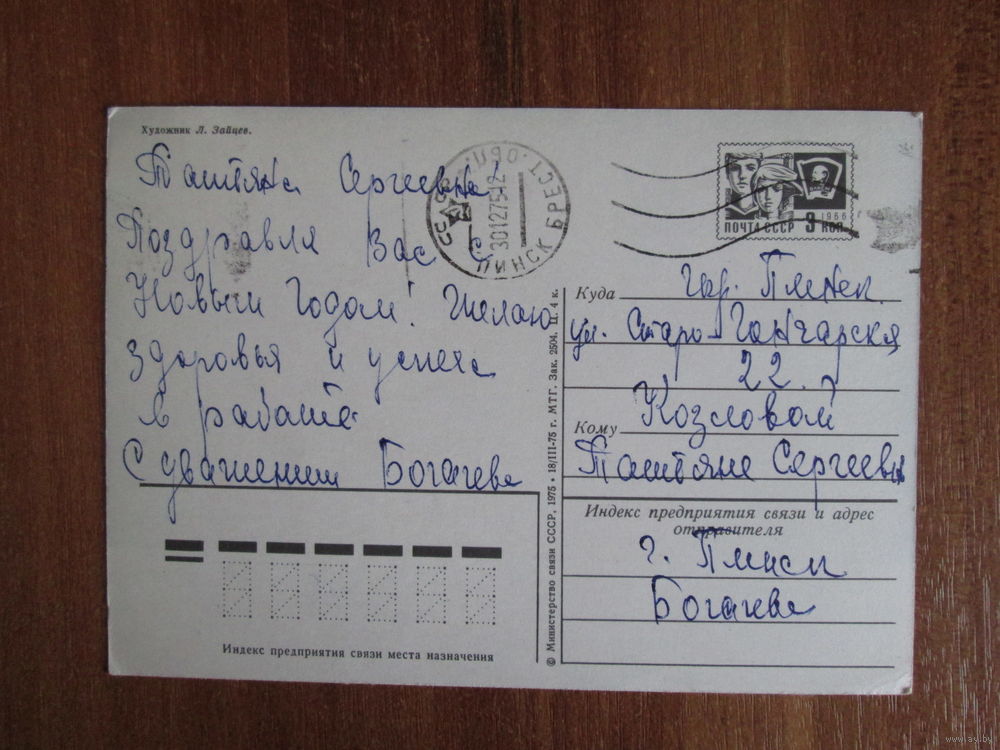 Художник Л. Зайцев.
Татяна Сергеевна!
Поздравля Вас с
Новым Годом! Желаю
здоровья и успеха
в работе
С уважением Богачева
Индекс предприятия связи места назначения
© Министерство связи СССР, 1975 • 18/III-75 г. МТГ. Зак. 2504. Ц. 4 к.
СССР ПИНСК БРЕСТ. ОБЛ.
30127512
1966
ПОЧТА СССР 3 КОП
Куда гор. Пинск
ул. Старо-Гончарская
22.
Козловой
Кому
Татяне Сергеевн
Индекс предприятия связи и адрес
отправителя
г. Пинск
Богачева
www.ay.by